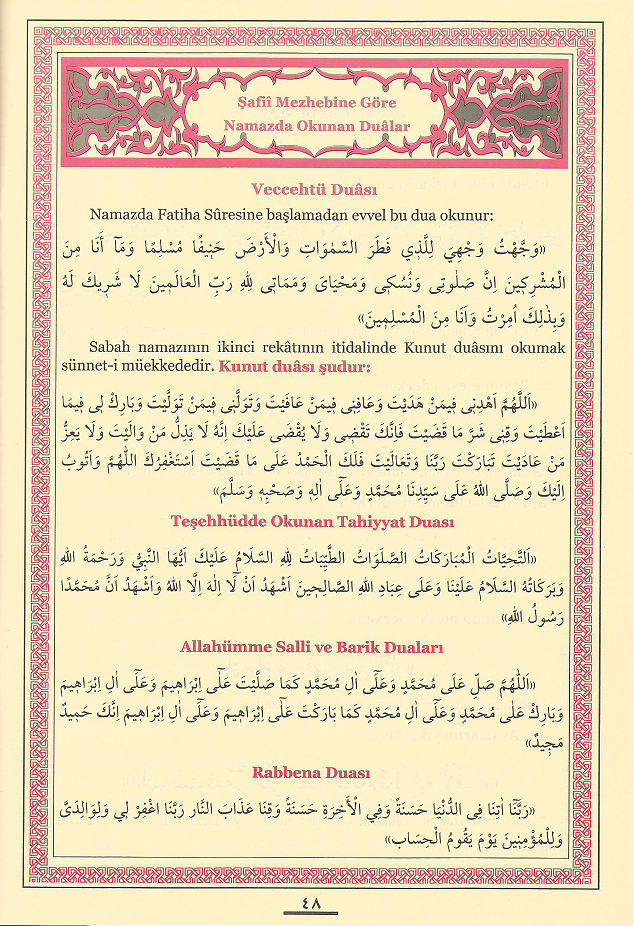 Şafiî Mezhebine Göre
Namazda Okunan Duâlar
Veccehtü Duâsı
Namazda Fatiha Sûresine başlamadan evvel bu dua okunur:
«وَجَّهْتُ وَجْهِيَ لِلَّذِي فَطَرَ السَّمٰوَاتِ وَالْأَرْضَ حَنِيفًا مُسْلِمًا وَمَٓا أَنَا مِنَ
الْمُشْرِكِينَ اِنَّ صَلٰوتِى وَنُسُكِى وَمَحْيَاىَ وَمَمَاتِى لِلّٰهِ رَبِّ الْعَالَمِينَ لَا شَرِيكَ لَهُ
وَبِذٰلِكَ اُمِرْتُ وَاَنَا مِنَ الْمُسْلِمِينَ»
Sabah namazının ikinci rekâtının itidalinde Kunut duâsını okumak
sünnet-i müekkededir. Kunut duâsı şudur:
«اَللّٰهُمَّ اهْدِنِى فِيمَنْ هَدَيْتَ وَعَافِنِى فِيمَنْ عَافَيْتَ وَتَوَلَّنِى فِيمَنْ تَوَلَّيْتَ وَبَارِكْ لِى فِيمَا
اَعْطَيْتَ وَقِنِى شَرَّ مَا قَضَيْتَ فَاِنَّكَ تَقْضِى وَلَا يُقْضَى عَلَيْكَ اِنَّهُ لَا يَذِلُّ مَنْ وَالَيْتَ وَلَا يَعِزُّ
مَنْ عَادَيْتَ تَبَارَكْتَ رَبَّنَا وَتَعَالَيْتَ فَلَكَ الْحَمْدُ عَلَى مَا قَضَيْتَ اَسْتَغْفِرُكَ اللّٰهُمَّ وَاَتُوبُ
اِلَيْكَ وَصَلَّى اللهُ عَلَى سَيِّدِنَا مُحَمَّدٍ وَعَلَٓى اٰلِهِ وَصَحْبِهِ وَسَلَّمَ»
Teşehhüdde Okunan Tahiyyat Duası
«اَلتَّحِيَّاتُ الْمُبَارَكَاتُ الصَّلَوَاتُ الطَّيِّبَاتُ لِلّٰهِ السَّلَامُ عَلَيْكَ اَيُّهَا النَّبِيُّ وَرَحْمَةُ اللهِ
وَبَرَكَاتُهُ السَّلَامُ عَلَيْنَا وَعَلَى عِبَادِ اللهِ الصَّالِحِينَ اَشْهَدُ اَنْ لَٓا اِلٰهَ اِلَّا اللهُ وَاَشْهَدُ اَنَّ مُحَمَّدًا
رَسُولُ اللهِ»
Allahümme Salli ve Barik Duaları
«اَللّٰهُمَّ صَلِّ عَلَى مُحَمَّدٍ وَعَلَٓى اٰلِ مُحَمَّدٍ كَمَا صَلَّيْتَ عَلَٓى اِبْرَاهِيمَ وَعَلَٓى اٰلِ اِبْرَاهِيمَ
وَبَارِكْ عَلٰى مُحَمَّدٍ وَعَلَٓى اٰلِ مُحَمَّدٍ كَمَا بَارَكْتَ عَلَٓى اِبْرَاهِيمَ وَعَلَٓى اٰلِ اِبْرَاهِيمَ اِنَّكَ حَمِيدٌ
مَجِيدٌ»
Rabbena Duası
«رَبَّنَٓا اٰتِنَا فِى الدُّنْيَا حَسَنَةً وَفِي الْأٰخِرَةِ حَسَنَةً وَقِنَا عَذَابَ النَّارِ رَبَّنَا اغْفِرْ لِي وَلِوَالِدَىَّ
وَلِلْمُؤْمِنِينَ يَوْمَ يَقُومُ الْحِسَابِ»
٤٨